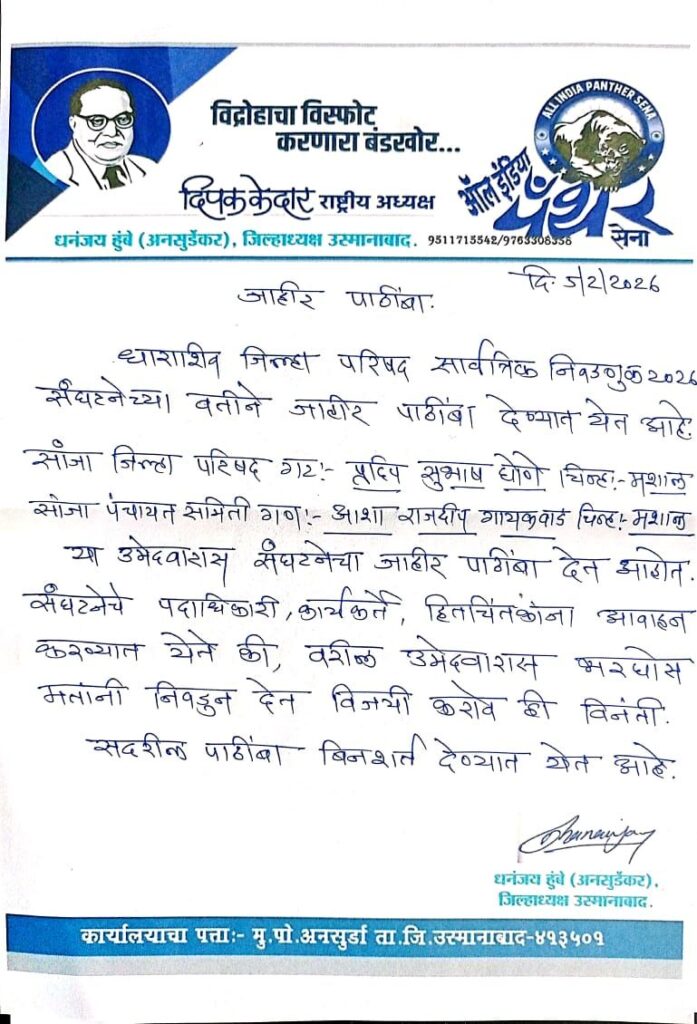 विद्रोहाचा विस्फोट
करणारा बंडखोर...
दिपक केदार राष्ट्रीय अध्यक्ष
ALL INDIA PANTHER SENA
ऑल इंडिया
पँथर
सेना
धनंजय हुंबे (अनसुर्डेकर), जिल्हाध्यक्ष उस्मानाबाद. 9511715542/9763308358
दि: 5/2/2026
जाहीर पाठींबा.
धाराशिव जिल्हा परिषद सार्वत्रिक निवडणुक 2026
संघटनेच्या वतीने जाहीर पाठींबा देण्यात येत आहे.
सांजा जिल्हा परिषद गट:- प्रदिप सुभाष घोणे चिन्ह:- मशाल
सांजा पंचायत समिती गण:- आशा राजदीप गायकवाड चिन्ह:- मशाल
या उमेदवारास संघटनेचा जाहीर पाठींबा देत आहोत.
संघटनेचे पदाधिकारी, कार्यकर्ते, हितचिंतकांना आवाहन
करण्यात येते की, वरील उमेदवारास भरघोस
मतांनी निवडुन देत विजयी करावे ही विनंती.
सदरील पाठींबा बिनशर्त देण्यात येत आहे.
Dhananjay
धनंजय हुंबे (अनसुर्डेकर),
जिल्हाध्यक्ष उस्मानाबाद.
कार्यालयाचा पत्ता:- मु.पो.अनसुर्डा ता.जि.उस्मानाबाद-४१३५०१